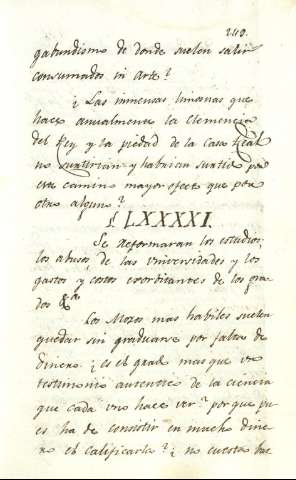 240.
gabundismo de donde suelen salir
consumados in Arte?
¿Las inmensas limosnas que
hace anualmente la Clemencia
del Rey y la piedad de la Casa Real
no surtirian y habrian surtido por
este camino mayor efecto que por
otro alguno?
§. LXXXXI.
Se Reformaran los estudios,
los abusos, de las Universidades y los
gastos y costos exorbitantes de los gra-
dos &a.
Los Mozos mas habiles suelen
quedar sin graduarse por falta de
dinero. ¿es el grado mas que un
testimonio autentico de la ciencia
que cada uno hace ver? porque pu
es ha de consistir en mucho dine
ro el calificarla? ¿no cuesta bas